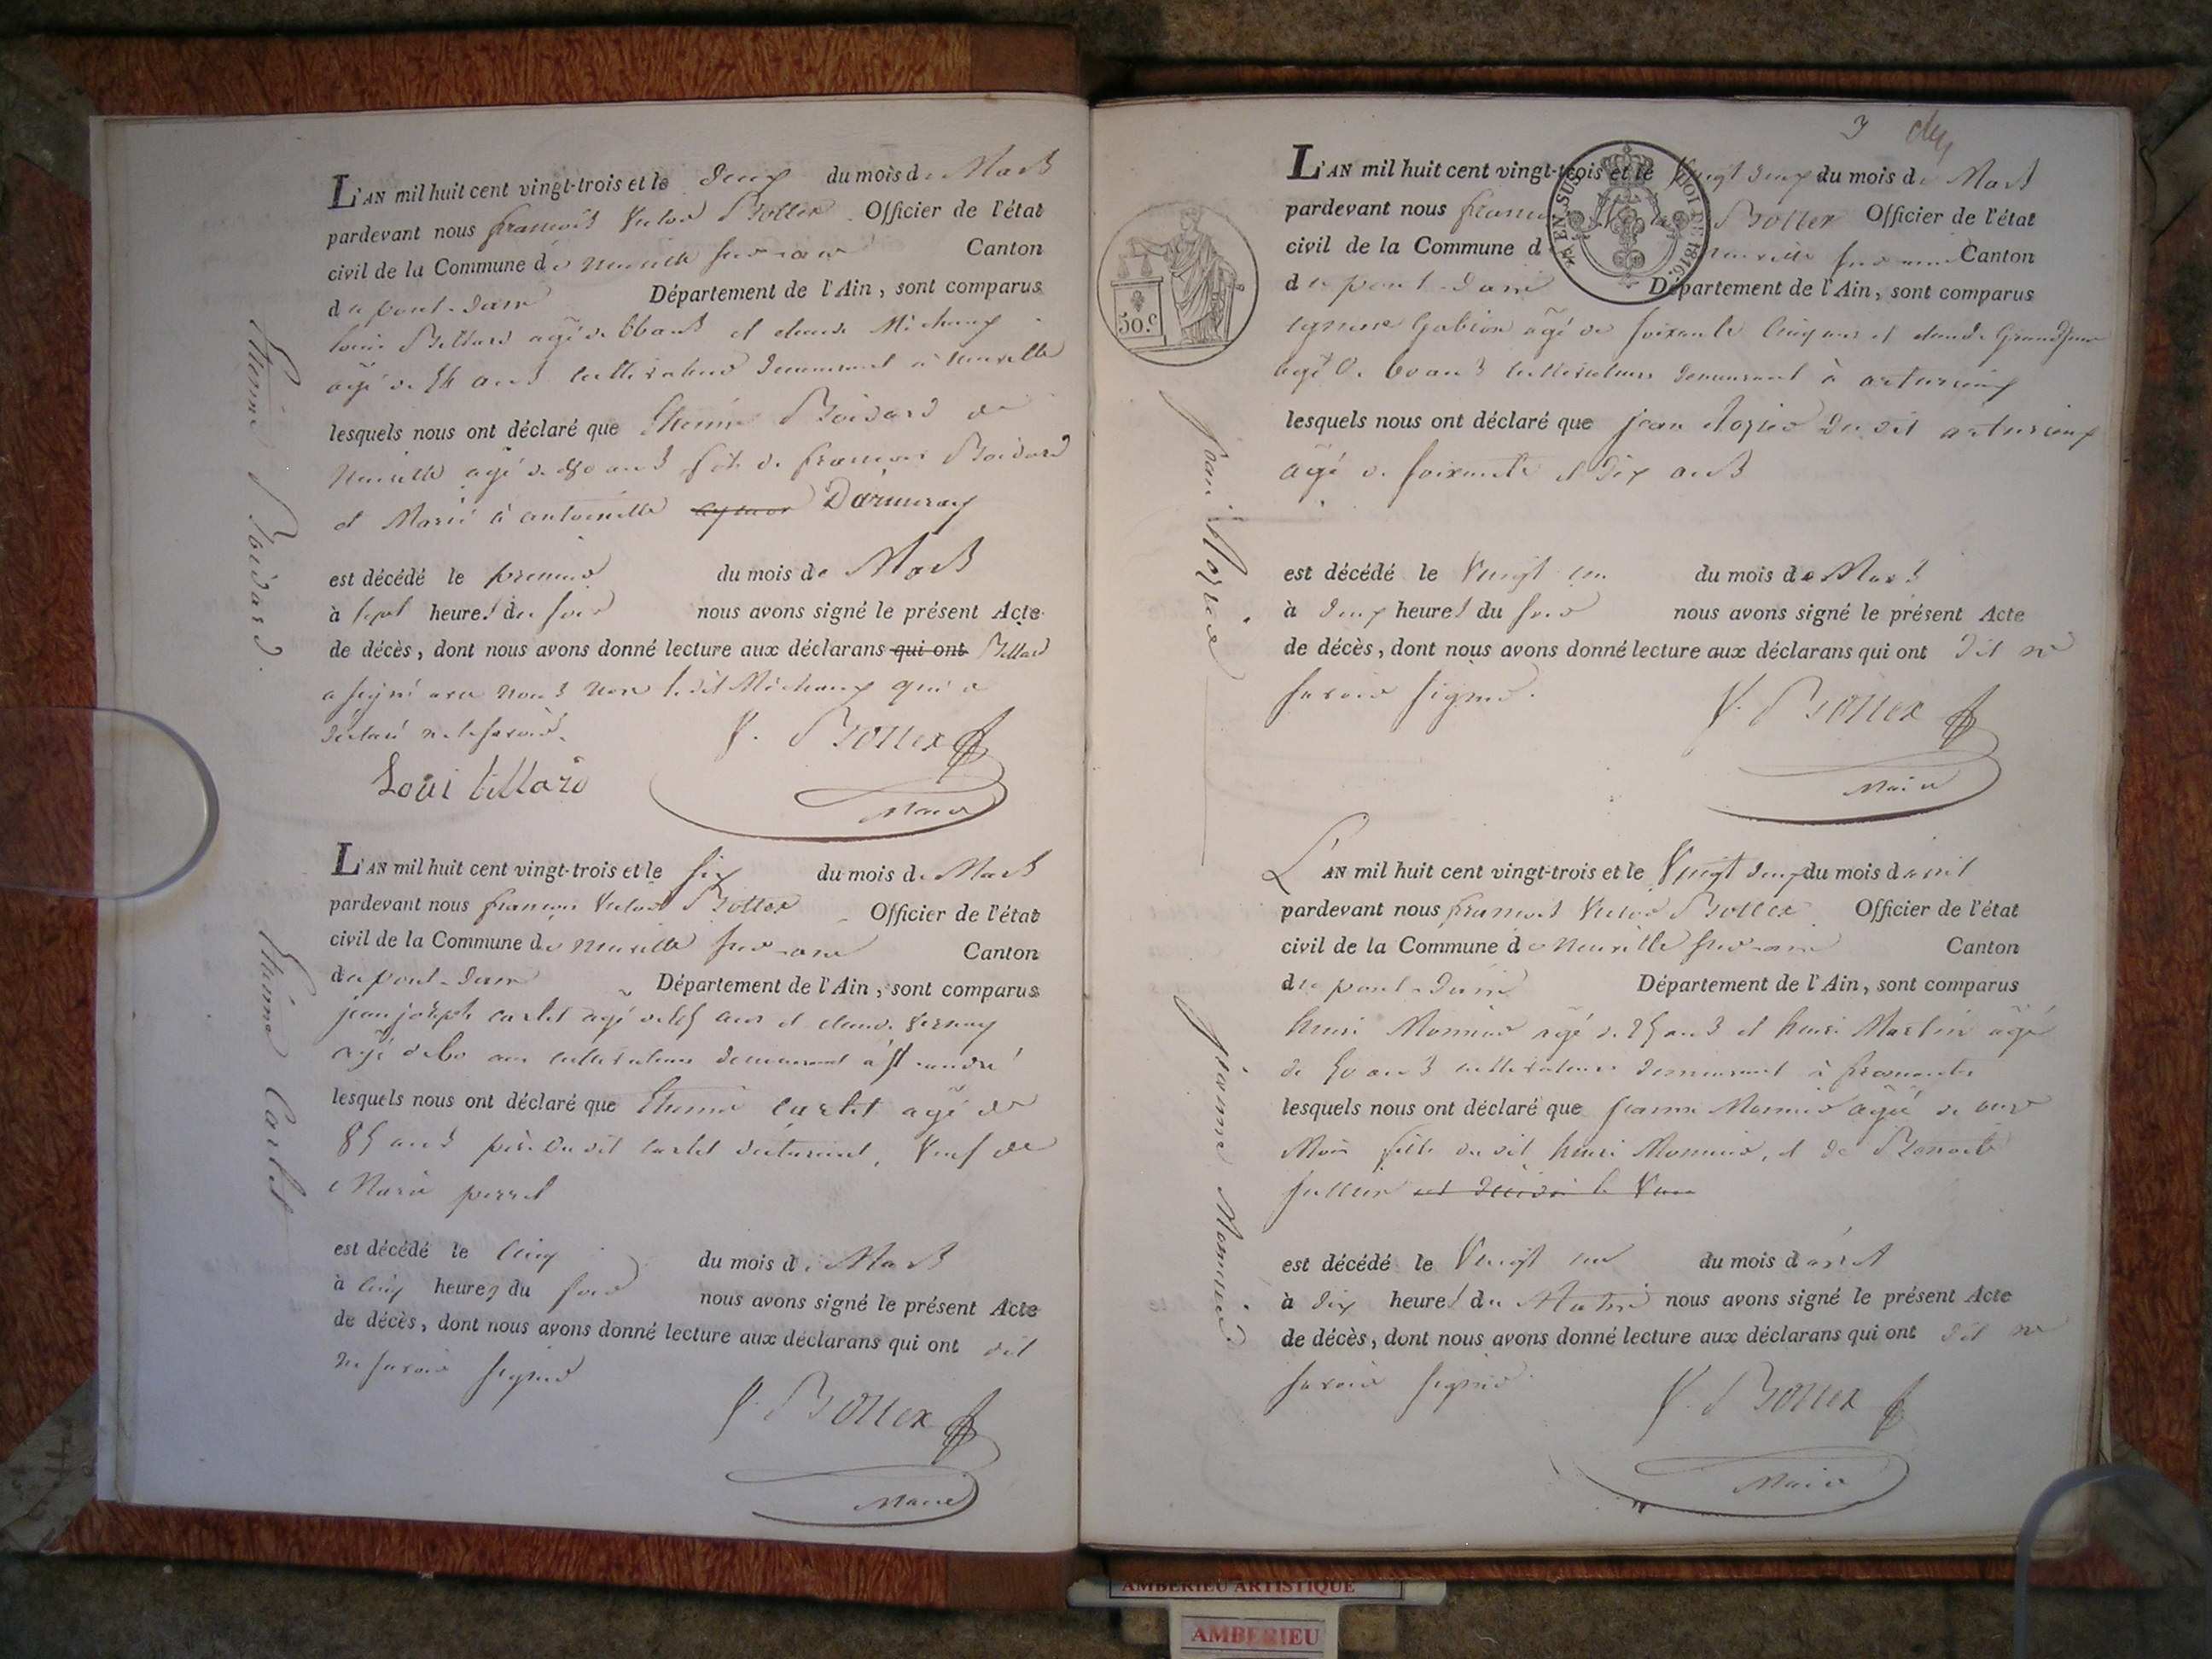 L'AN mil huit cent vingt-trois et le deux du mois de Mars
pardevant nous françois Victor Bottex Officier de l'état
civil de la Commune de neuville sur ain Canton
de pont-dain Département de l'Ain, sont comparus
louis Billard agé de ans et claude Michaux
agé de ans cultivateurs demeurant à neuville
lesquels nous ont déclaré que Etienne Boidard de
Neuville agé de ans fils de françois Boidard
et Marié à antoinette Darmeray
est décédé le premier du mois de Mars
à sept heures du soir nous avons signé le présent Acte
de décès, dont nous avons donné lecture aux déclarans qui ont Billard
a signé avec nous non le dit Michaux qui a
déclaré ne le savoir.
V. Bottex
Loui billard
Maire
Etienne Boidard.
L'AN mil huit cent vingt-trois et le six du mois de Mars
pardevant nous françois Victor Bottex Officier de l'état
civil de la Commune de neuville sur ain Canton
de pont-dain Département de l'Ain, sont comparus
jean joseph carlet agé de ans et claude
agé de 60 ans cultivateurs demeurant à st andré
lesquels nous ont déclaré que Etienne Carlet agé de
85 ans père du dit carlet déclarant, Veuf de
Marie perret
est décédé le cinq du mois de Mars
à cinq heures du soir nous avons signé le présent Acte
de décès, dont nous avons donné lecture aux déclarans qui ont dit
ne savoir signer
V. Bottex
Maire
Etienne Carlet
3
L'AN mil huit cent vingt-trois et le Vingt deux du mois de Mars
pardevant nous françois Bottex Officier de l'état
civil de la Commune de neuville sur ain Canton
de pont-dain Département de l'Ain, sont comparus
EN SUS
LOI DE 1816.
50.c
Gabion agé de soixante cinq ans et claude Grandjean
agé de 60 ans cultivateurs demeurant à arturieux
lesquels nous ont déclaré que jean du dit arturieux
agé de soixante et dix ans
est décédé le Vingt un du mois de Mars
à deux heures du soir nous avons signé le présent Acte
de décès, dont nous avons donné lecture aux déclarans qui ont dit ne
savoir signer.
V. Bottex
Maire
jean
L'AN mil huit cent vingt-trois et le Vingt deux du mois d avril
pardevant nous françois Victor Bottex Officier de l'état
civil de la Commune de Neuville sur ain Canton
de pont-dain Département de l'Ain, sont comparus
henri Monnier agé de 25 ans et henri Martin agé
de 50 ans cultivateurs demeurant à fromente
lesquels nous ont déclaré que jeanne Monnier agée de onze
Mois fille du dit henri Monnier, et de Benoite
est décédé le Vingt un du mois d avril
à dix heures du Matin nous avons signé le présent Acte
de décès, dont nous avons donné lecture aux déclarans qui ont dit ne
savoir signer.
V. Bottex
Maire
jeanne Monnier
AMBERIEU ARTISTIQUE
AMBERIEU